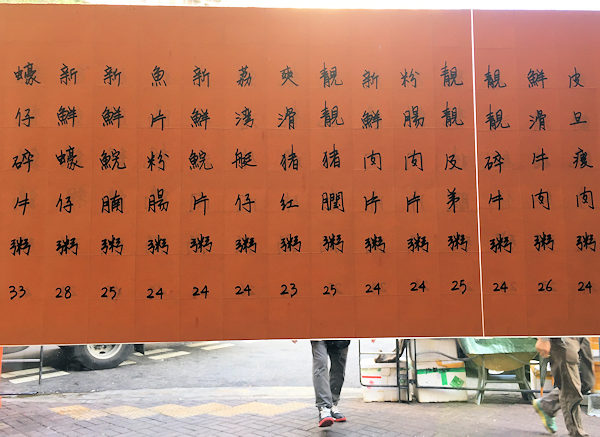 皮旦瘦肉粥 24
鮮滑牛肉粥 26
靚靚碎牛粥 24
靚靚皮弟粥 25
粉腸肉片粥 24
新鮮肉片粥 24
靚靚猪膶粥 25
爽滑猪红粥 23
荔湾艇仔粥 24
新鮮鯇片粥 24
魚片粉腸粥 24
新鮮鯇腩粥 25
新鮮蠔仔粥 28
蠔仔碎牛粥 33